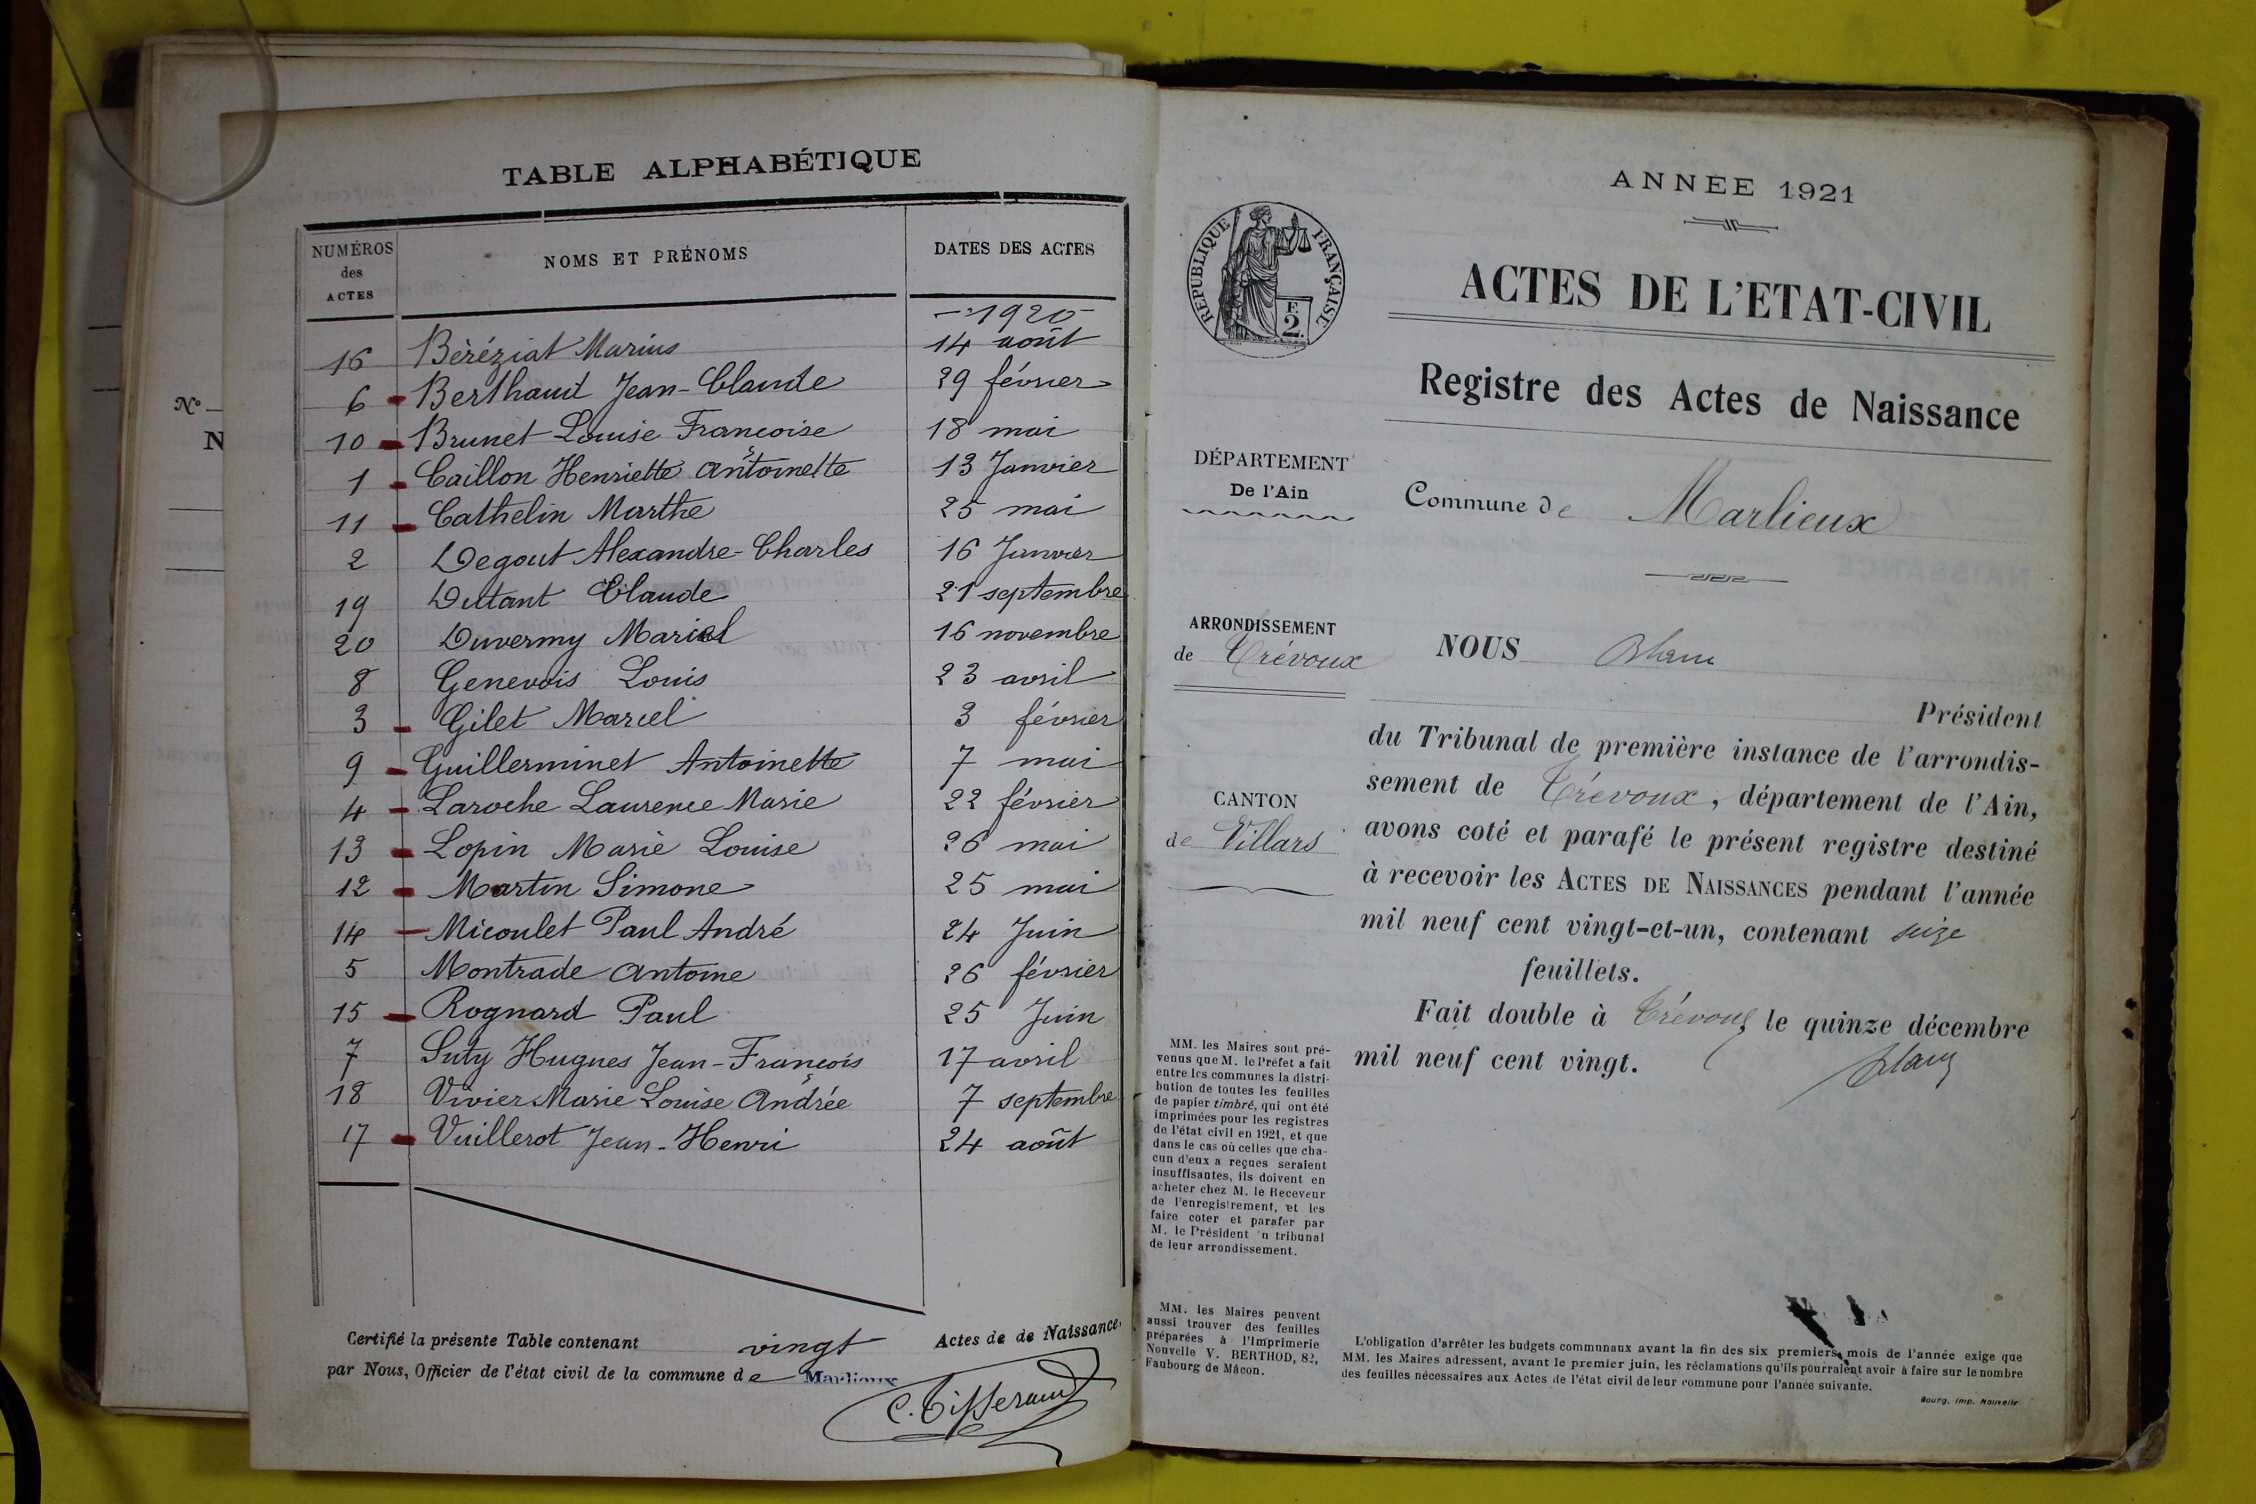 N°
N
TABLE ALPHABÉTIQUE
NUMÉROS des ACTES NOMS ET PRÉNOMS DATES DES ACTES
1920
16 Béréziat Marius 14 août
6 Berthaud Jean-Claude 29 février
10 Brunet Louise Françoise 18 mai
1 Caillon Henriette Antoinette 13 Janvier
11 Cathelin Marthe 25 mai
2 Degout Alexandre-Charles 16 Janvier
19 Dutant Claude 21 septembre
20 Duvermy 16 novembre
8 Genevois Louis 23 avril
3 Gilet Marcel 3 février
9 Guillerminet Antoinette 7 mai
4 Laroche Laurence Marie 22 février
13 Lopin Marie Louise 26 mai
12 Martin Simone 25 mai
14 Micoulet Paul André 24 Juin
5 Montrade Antoine 26 février
15 Rognard Paul 25 Juin
7 Suty Hugues Jean-François 17 avril
18 Vivier Marie Louise Andrée 7 septembre
17 Vuillerot Jean-Henri 24 août
Certifié la présente Table contenant vingt Actes de de Naissance
par Nous, Officier de l'état civil de la commune de Marlieux
C. Tisserand
ANNEE 1921
REPUBLIQUE FRANÇAISE
F.
2.
ACTES DE L'ETAT-CIVIL
Registre des Actes de Naissance
DÉPARTEMENT
De l'Ain
Commune de Marlieux
ARRONDISSEMENT
de Trévoux
NOUS Blanc
Président
du Tribunal de première instance de l'arrondis-
sement de Trévoux, département de l'Ain,
avons coté et parafé le présent registre destiné
à recevoir les ACTES DE NAISSANCES pendant l'année
mil neuf cent vingt-et-un, contenant seize
feuillets.
Fait double à Trévoux le quinze décembre
mil neuf cent vingt.
Blanc
CANTON
de Villars
MM. les Maires sont pré-
venus que M. le Préfet a fait
entre les communes la distri-
bution de toutes les feuilles
de papier timbré, qui ont été
imprimées pour les registres
de l'état civil en 1921, et que
dans le cas où celles que cha-
cun d'eux a reçues seraient
insuffisantes, ils doivent en
acheter chez M. le Receveur
de l'enregistrement, et les
faire coter et parafer par
M. le Président 'n tribunal
de leur arrondissement.
MM. les Maires peuvent
aussi trouver des feuilles
préparées à l'Imprimerie
Nouvelle V. BERTHOD, 82,
Faubourg de Mâcon.
L'obligation d'arrêter les budgets communaux avant la fin des six premiers mois de l'année exige que
MM. les Maires adressent, avant le premier juin, les réclamations qu'ils pourraient avoir à faire sur le nombre
des feuilles nécessaires aux Actes de l'état civil de leur commune pour l'année suivante.
Bourg, Imp. Nouvelle